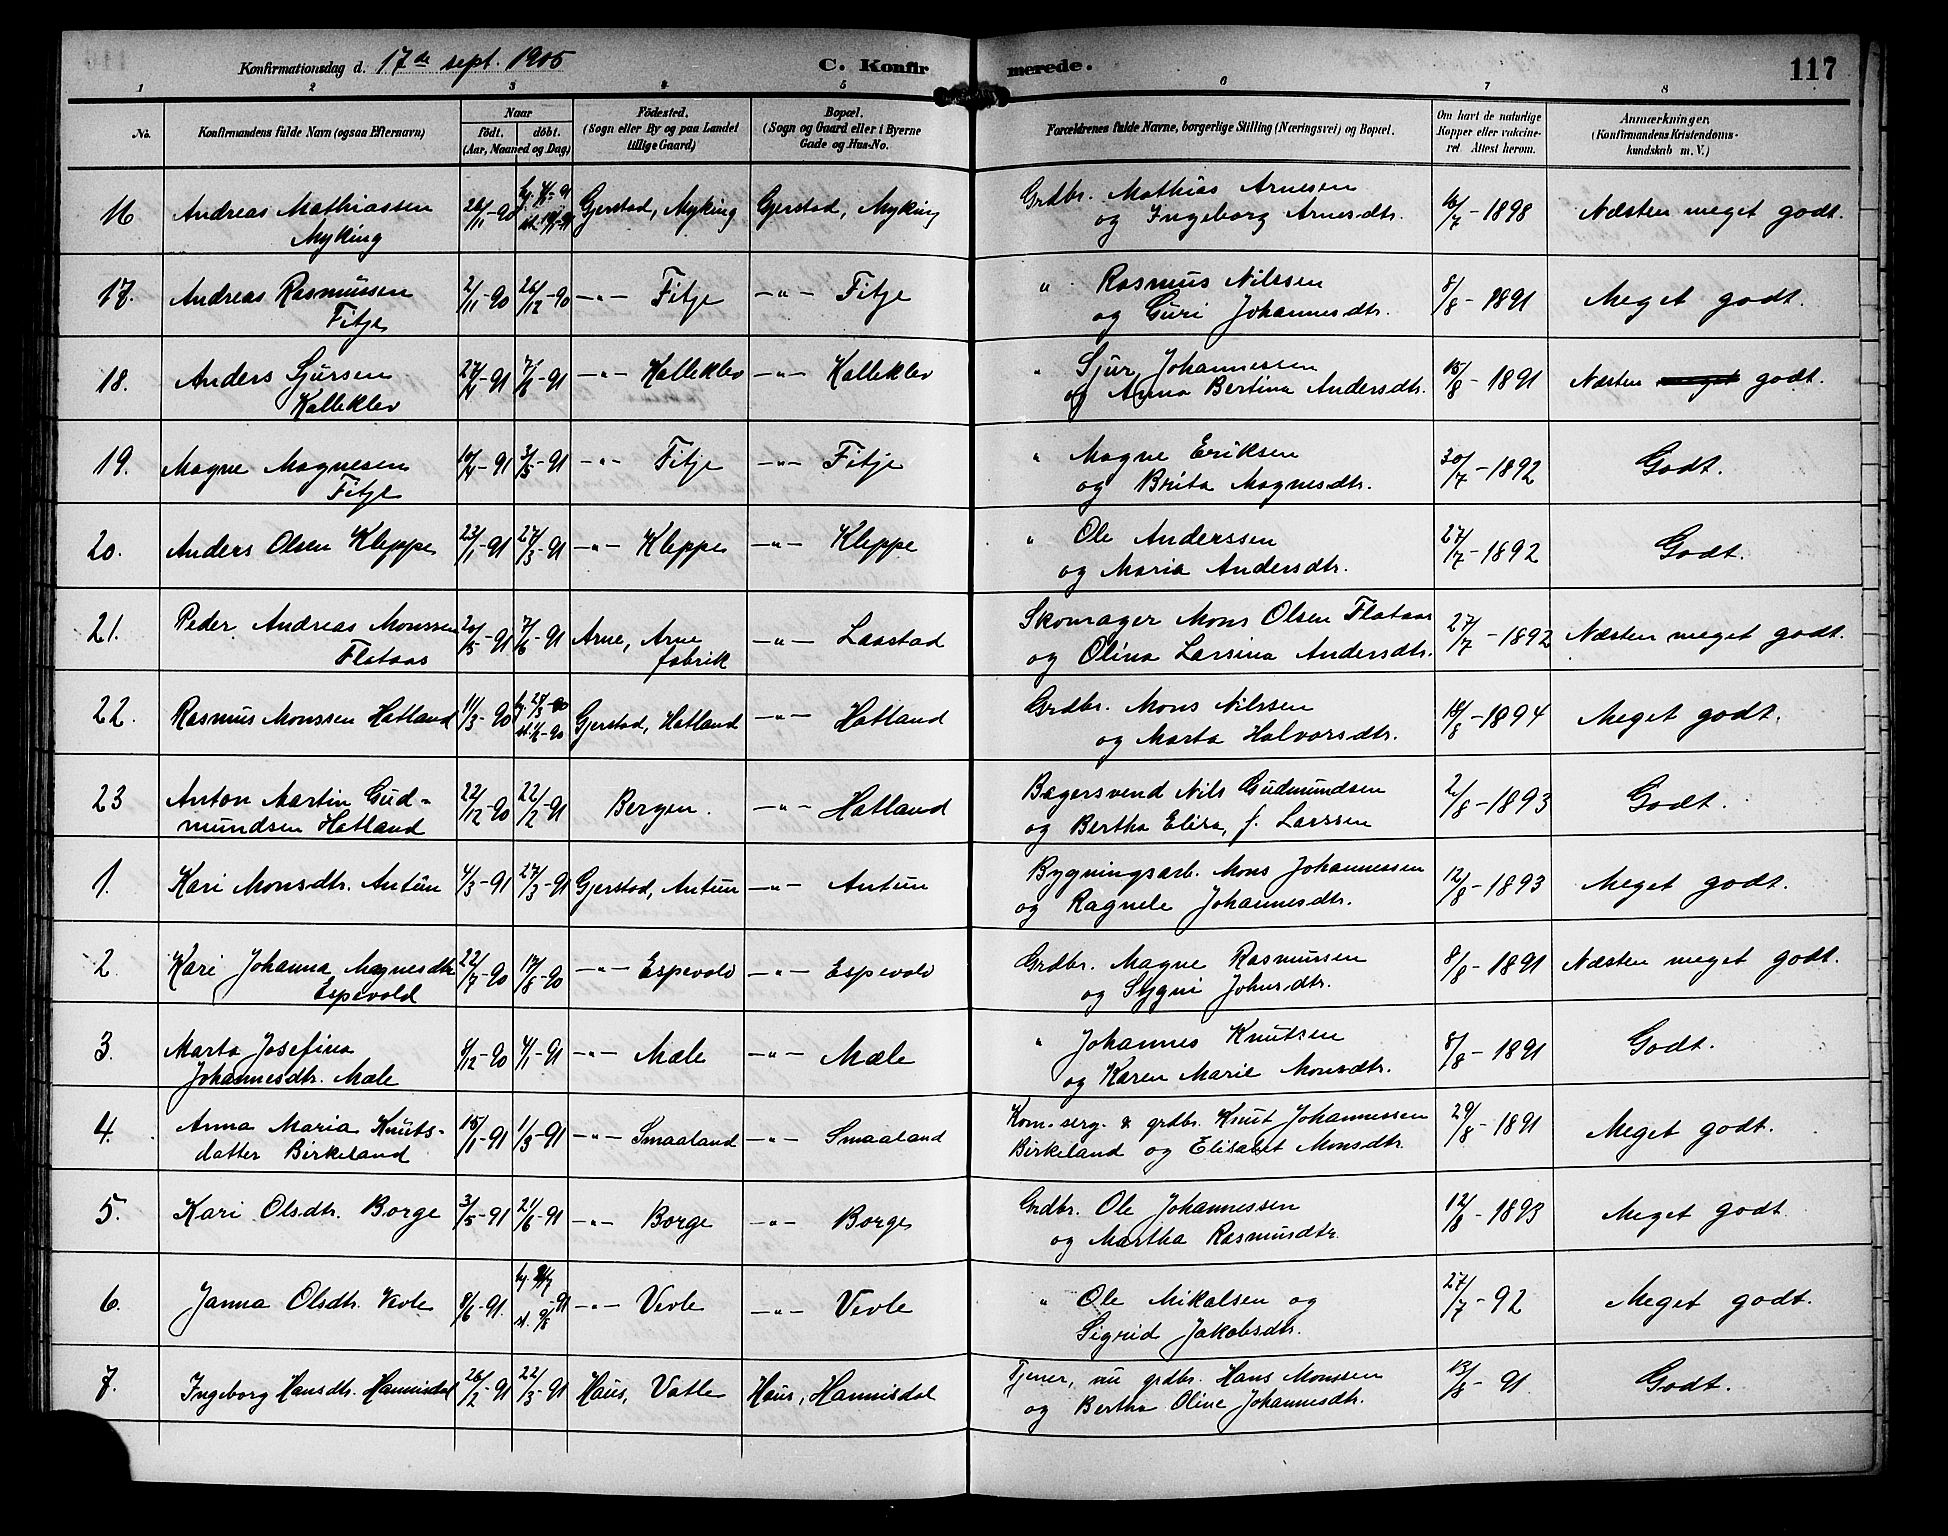 Konfirmationsdag d. 17de sept. 1905
C. Konfirmerede.
117
1 2 3 4 5 6 7 8
No. Konfirmandens fulde Navn (ogsaa Efternavn) Naar født. døbt. (Aar, Maaned og Dag) Födested. (Sogn eller By og paa Landet tillige Gaard) Bopæl. (Sogn og Gaard eller i Byerne Gade og Hus-No. Forældrenes fulde Navne, borgerlige Stilling (Næringsvei) og Bopæl. Om havt de naturlige Kopper eller vakcineret Attest herom. Anmærkninger. (Konfirmandens Kristendomskundskab m. V.)
16 Andreas Mathiassen Myking Gjerstad, Myking Gjerstad, Myking Grdbr. Mathias Arnesen og Ingeborg Arnesdtr. 16/7-1898 Næsten meget godt.
17. Andreas Rasmussen Fitje 2/11-90 26/12-90 -"- Fitje -"- Fitje " Rasmus Nilssen og Guri Johannesdtr. 8/8-1891 Meget godt.
18. Anders Sjursen Kalleklev 27/4-91 7/6-91 -"- Kalleklev -"- Kalleklev " Sjur Johannessen og Anna Bertina Andersdtr. 15/8-1891 Næsten meget godt.
19. Magne Magnesen Fitje 10/4-91 3/5-91 -"- Fitje -"- Fitje " Magne Eriksen og Brita Magnesdtr. 30/7-1892 Godt.
20. Anders Olsen Kleppe 23/1-91 27/3-91 -"- Kleppe -"- Kleppe " Ole Anderssen og Maria Andersdtr. 27/7-1892 Godt.
21. Peder Andreas Monssen Flataas 20/5-91 7/6-91 Arne, Arne fabrik -"- Laastad Skomager Mons Olsen Flataas og Olina Larsina Andersdtr. 27/7-1892 Næsten meget godt.
22. Rasmus Monssen Hatland 11/3-90 Gjerstad, Hatland -"- Hatland Grdbr. Mons Nilssen og Marta Halvorsdtr. 18/8-1894 Meget godt.
23 Anton Martin Gudmundsen Hatland 22/12-90 22/2-91 Bergen. -"- Hatland Bagersvend Nils Gudmundsen og Bertha Elisa, f. Larssen 2/8-1893 Godt.
1. Kari Monsdtr. Antun 4/3-91 27/3-91 Gjerstad, Antun -"- Antun Bygningsarb. Mons Johannessen og Ragnele Johannesdtr. 12/8-1893 Meget godt.
2. Kari Johanna Magnesdtr Espevold 22/7-90 17/8-90 -"- Espevold -"- Espevold Grdbr. Magne Rasmussen og Sygni Johnsdtr. 8/8-1891 Næsten meget godt.
3. Marta Josefina Johannesdtr. Mæle 4/12-90 4/1-91 -"- Mæle -"- Mæle " Johannes Knutsen og Karen Marie Monsdtr. 8/8-1891 Godt.
4. Anna Maria Knutsdatter Birkeland 15/1-91 1/3-91 -"- Smaaland -"- Smaaland Kom. serg. & grdbr. Knut Johannessen Birkeland og Elisabet Monsdtr. 29/8-1891 Meget godt.
5. Kari Olsdtr. Borge 3/5-91 21/6-91 -"- Borge -"- Borge Grdbr. Ole Johannessen og Martha Rasmusdtr. 12/8-1893 Meget godt.
6. Janna Olsdtr. Vevle 8/6-91. -"- Vevle -"- Vevle " Ole Mikalsen og Sigrid Jakobsdtr. 27/7-92 Meget godt.
7. Ingeborg Hansdtr. Hannisdal 26/2-91 22/3-91 Haus, Vatle Haus, Hannisdal Tjener, nu grdbr. Hans Monssen og Bertha Oline Johannesdtr. 13/8-91. Godt.